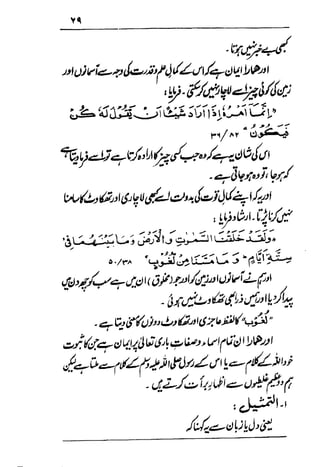 ۲۹
کبھی بے خبر نہیں ہوتا۔
اور ہمارا ایمان ہے کہ اس کے کمال علم و قدرت کی وجہ سے آسمانوں اور
زمین کی کوئی چیز اسے لاچار نہیں کر سکتی۔ فرمایا:
"اِنَّمَا اَمْرُہٗ اِذَا اَرَادَ شَیْئًا اَنْ یَّقُوْلَ لَہٗ کُنْ
فَیَکُوْنُ" ۳۶/۸۲
اس کی شان یہ ہے کہ وہ جب کسی چیز کا ارادہ کرتا ہے تو اسے فرما دیتا ہے
کہ ہو جا، تو وہ ہو جاتی ہے۔
اور یہ کہ اپنے کمال قوت کی بدولت اسے کبھی لاچاری اور تھکاوٹ کا سامنا
نہیں کرنا پڑتا۔ ارشاد فرمایا:
"وَلَقَدْ خَلَقْنَا السَّمٰوٰتِ وَالْاَرْضَ وَمَا بَیْنَہُمَا فِیْ
سِتَّةِ اَیَّامٍ" وَمَا مَسَّنَا مِنْ لُّغُوْبٍ" ۵۰/۳۸
اور ہم نے آسمانوں اور زمین کو اور جو (مخلوق) ان میں ہے سب کو چھ دن میں
پیدا کر دیا اور ہمیں ذرا بھی تھکاوٹ نہیں ہوئی۔
"لُغُوْب" کا لفظ عاجزی اور تھکاوٹ دونوں کا معنی دیتا ہے۔
اور ہمارا ان تمام اسماء و صفات باری تعالیٰ پر ایمان ہے جن کا ثبوت
خود اللہ کے کلام سے یا اس کے رسول صلی اللہ علیہ وسلم کے کلام سے ملتا ہے لیکن
ہم دو عظیم غلطیوں سے اظہار برأت کرتے ہیں۔
۱۔ التمثیل:
یعنی دل یا زبان سے یہ کہنا کہ